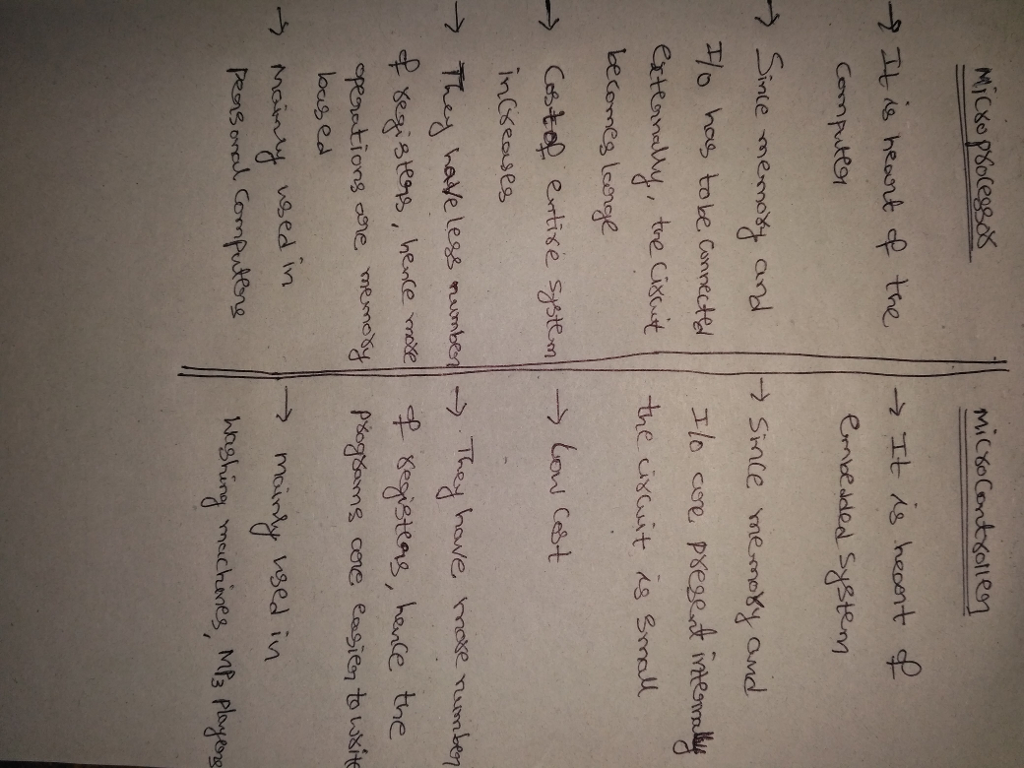 Microprocessor
→ It is heart of the
computer
→ Since memory and
I/o has to be connected
externally, the circuit
becomes large
→ Cost of entire system
increases
→ They have less number
of registers, hence more
operations are memory
based
→ mainly used in
personal computers
Microcontroller
→ It is heart of
embedded system
→ Since memory and
I/o are present internally
the circuit is small
→ Low cost
→ They have more number
of registers, hence the
programs are easier to write
→ mainly used in
washing machines, MP3 players